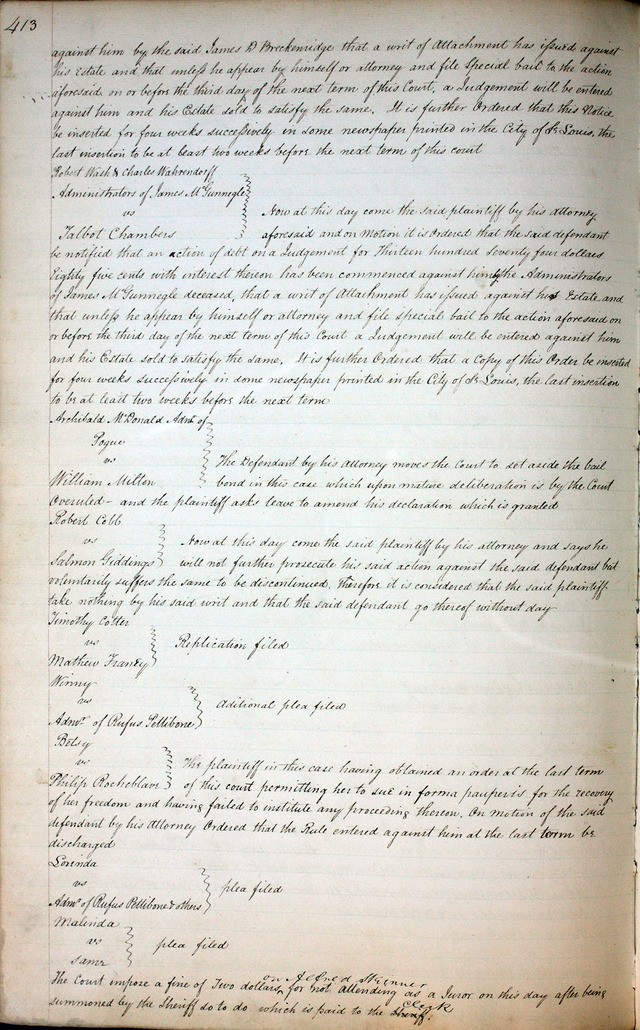 413
against him by the said James D Breckenridge that a writ of Attachment has issued against
his Estate and that unless he appear by himself or attorney and file special bail to the action
aforesaid on or before the third day of the next term of this Court, a Judgement will be entered
against him and his Estate sold to satisfy the same. It is further Ordered that this Notice
be inserted for four weeks successively in some newspaper printed in the City of St Louis, the
last insertion to be at least two weeks before the next term of this court
Robert Wash & Charles Wahrendorff
Administrators of James McGunnegle
vs
Now at this day come the said plaintiff by his attorney
Talbot Chambers
aforesaid and on motion it is Ordered that the said defendant
be notified that an action of debt on a Judgement for Thirteen hundred seventy four dollars
Eighty five cents with interest thereon has been commenced against him by the Administrators
of James McGunnegle deceased, that a writ of Attachment has issued against his Estate and
that unless he appear by himself or attorney and file special bail to the action aforesaid on
or before the third day of the next term of this Court a Judgement will be entered against him
and his Estate sold to satisfy the same. It is further Ordered that a Copy of this Order be inserted
for four weeks successively in some newspaper printed in the City of St Louis, the last insertion
to be at least two weeks before the next term
Archibald McDonald Admr of
Pogue
vs
The Defendant by his Attorney moves the Court to set aside the bail
William Milton
bond in this case which upon mature deliberation is by the Court
Overuled - and the plaintiff asks leave to amend his declaration which is granted
Robert Cobb
vs
Now at this day come the said plaintiff by his attorney and says he
Salmon Giddings
will not further prosecute his said action against the said defendant but
volentarily suffers the same to be discontinued. therefore it is considered that the said plaintiff
take nothing by his said writ and that the said defendant go thereof without day
Timothy Cotter
vs
Replication filed
Mathew Franey
Winny
vs
Aditional plea filed
Admr of Rufus Pettibone
Betsy
vs
The plaintiff in this case having obtained an order at the last term
Philip Rocheblave
of this court permitting her to sue in forma pauperis for the recovery
of her freedom and having failed to institute any proceeding thereon. On motion of the said
defendant by his Attorney Ordered that the Rule entered against him at the last term be
discharged
Lorinda
vs
plea filed
Admr of Rufus Pettibone & others
Malinda
vs
plea filed
same
on Alfred Skinner
The Court impose a fine of Two dollars, for not attending as a Juror on this day after being
Clerk
summoned by the Sheriff so to do which is paid to the Sheriff.